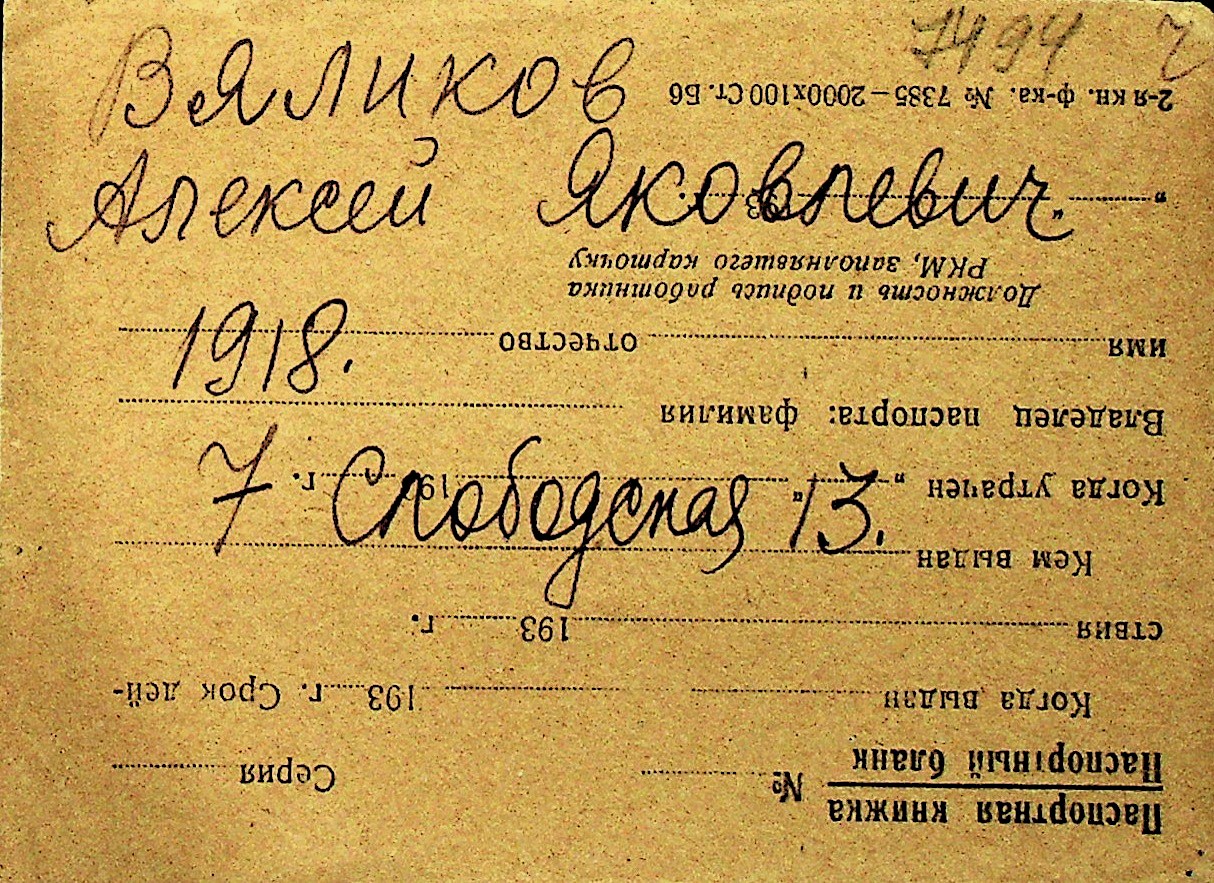 7494
Вяликов
Алексей Яковлевич
1918.
7 Слободская 13.
Паспортная книжка
Паспортный бланк № Серия
Когда выдан 193 г. Срок дей-
ствия 193 г.
Кем выдан
Когда утрачен „ “ 19 г.
Владелец паспорта: фамилия
имя отчество
Должность и подпись работника
РКМ, заполнявшего карточку
„ “ 193
2-я кн. ф-ка. № 7385—2000х100 Ст. Б6